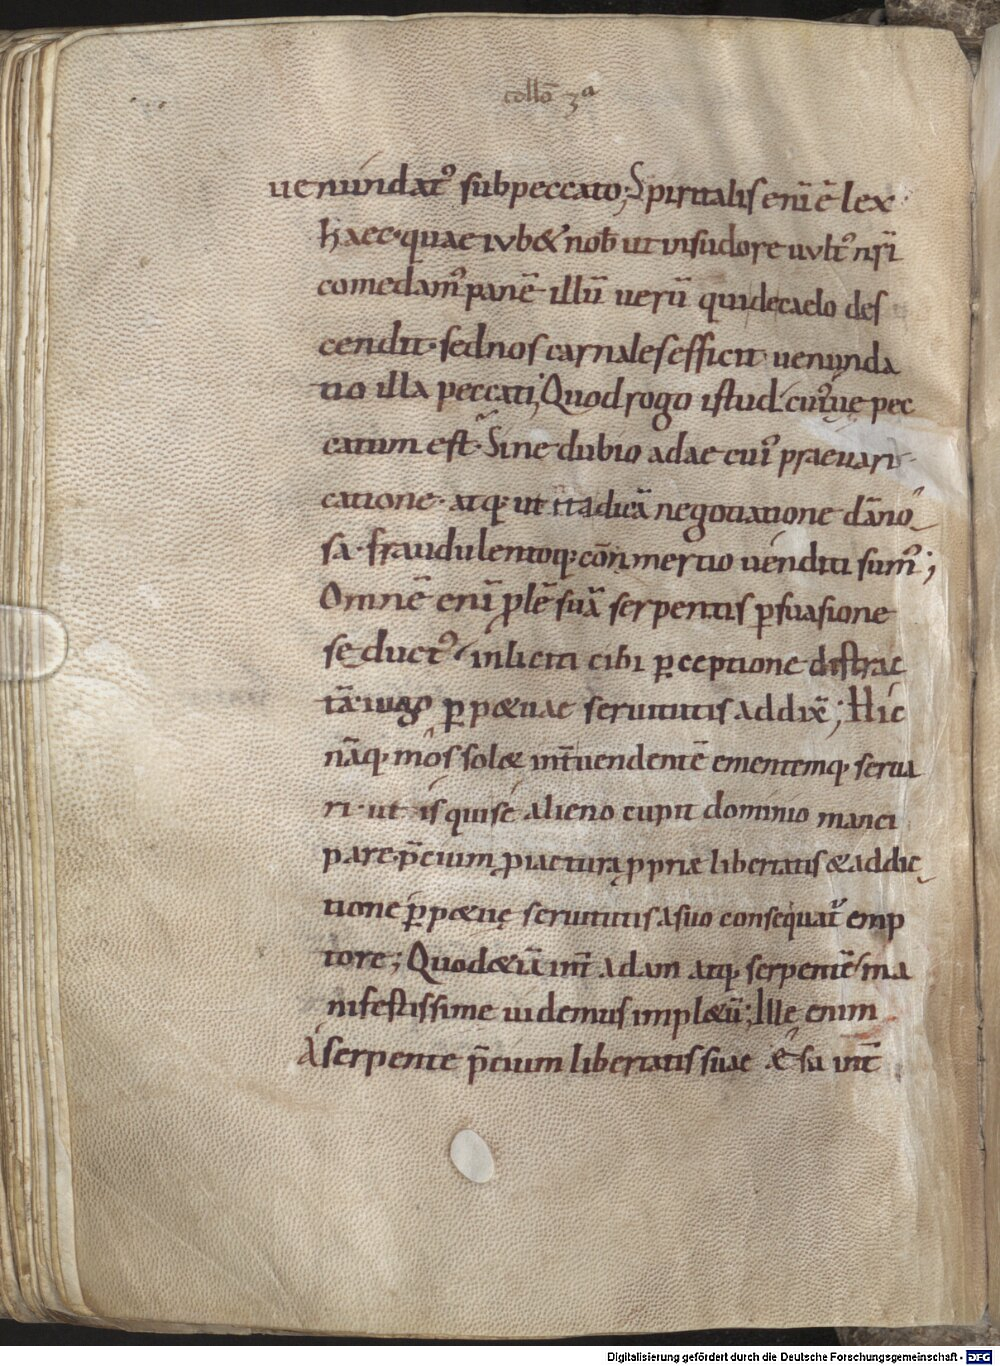 collō 3ª
uenundatꝰ subpeccato; Spiritalis enī ē lex
haec quae iub& nob̄ ut insudore uultꝰ nr̄i
comedamꝰ panē illū uerū quidecaelo des
cendit· sednos carnales efficit uenunda
tio illa peccati; Quod rogo istud· cuiꝰue pec
catum est· Sine dubio adae cuiꝰ praeuari
catione· atq; ut ita dicā negotiatione dāno
sa· fraudulentoq; cōnmertio uenditi sumꝰ;
Omnē enī ꝓlē suā serpentis ꝑsuasione
seductꝰ inliciti cibi ꝑceptione distrac
tā· iugo ꝑp&uae seruitutis addix̄; Hic
nāq; mos sol& int̄ uendentē ementemq; serua
ri· ut is qui se alieno cupit dominio manci
pare· p̄cium ꝓ iactura ꝓpriae libertatis & addic
tione ꝑp&uę seruitutis asuo consequat᷑ emp
tore; Quod &iā int̄ adam atq; serpentē ma
nifestissime uidemus impl&ū; Ille enim
Aserpente p̄cium libertatis suae & sū int̄
Digitalisierung gefördert durch die Deutsche Forschungsgemeinschaft - DFG